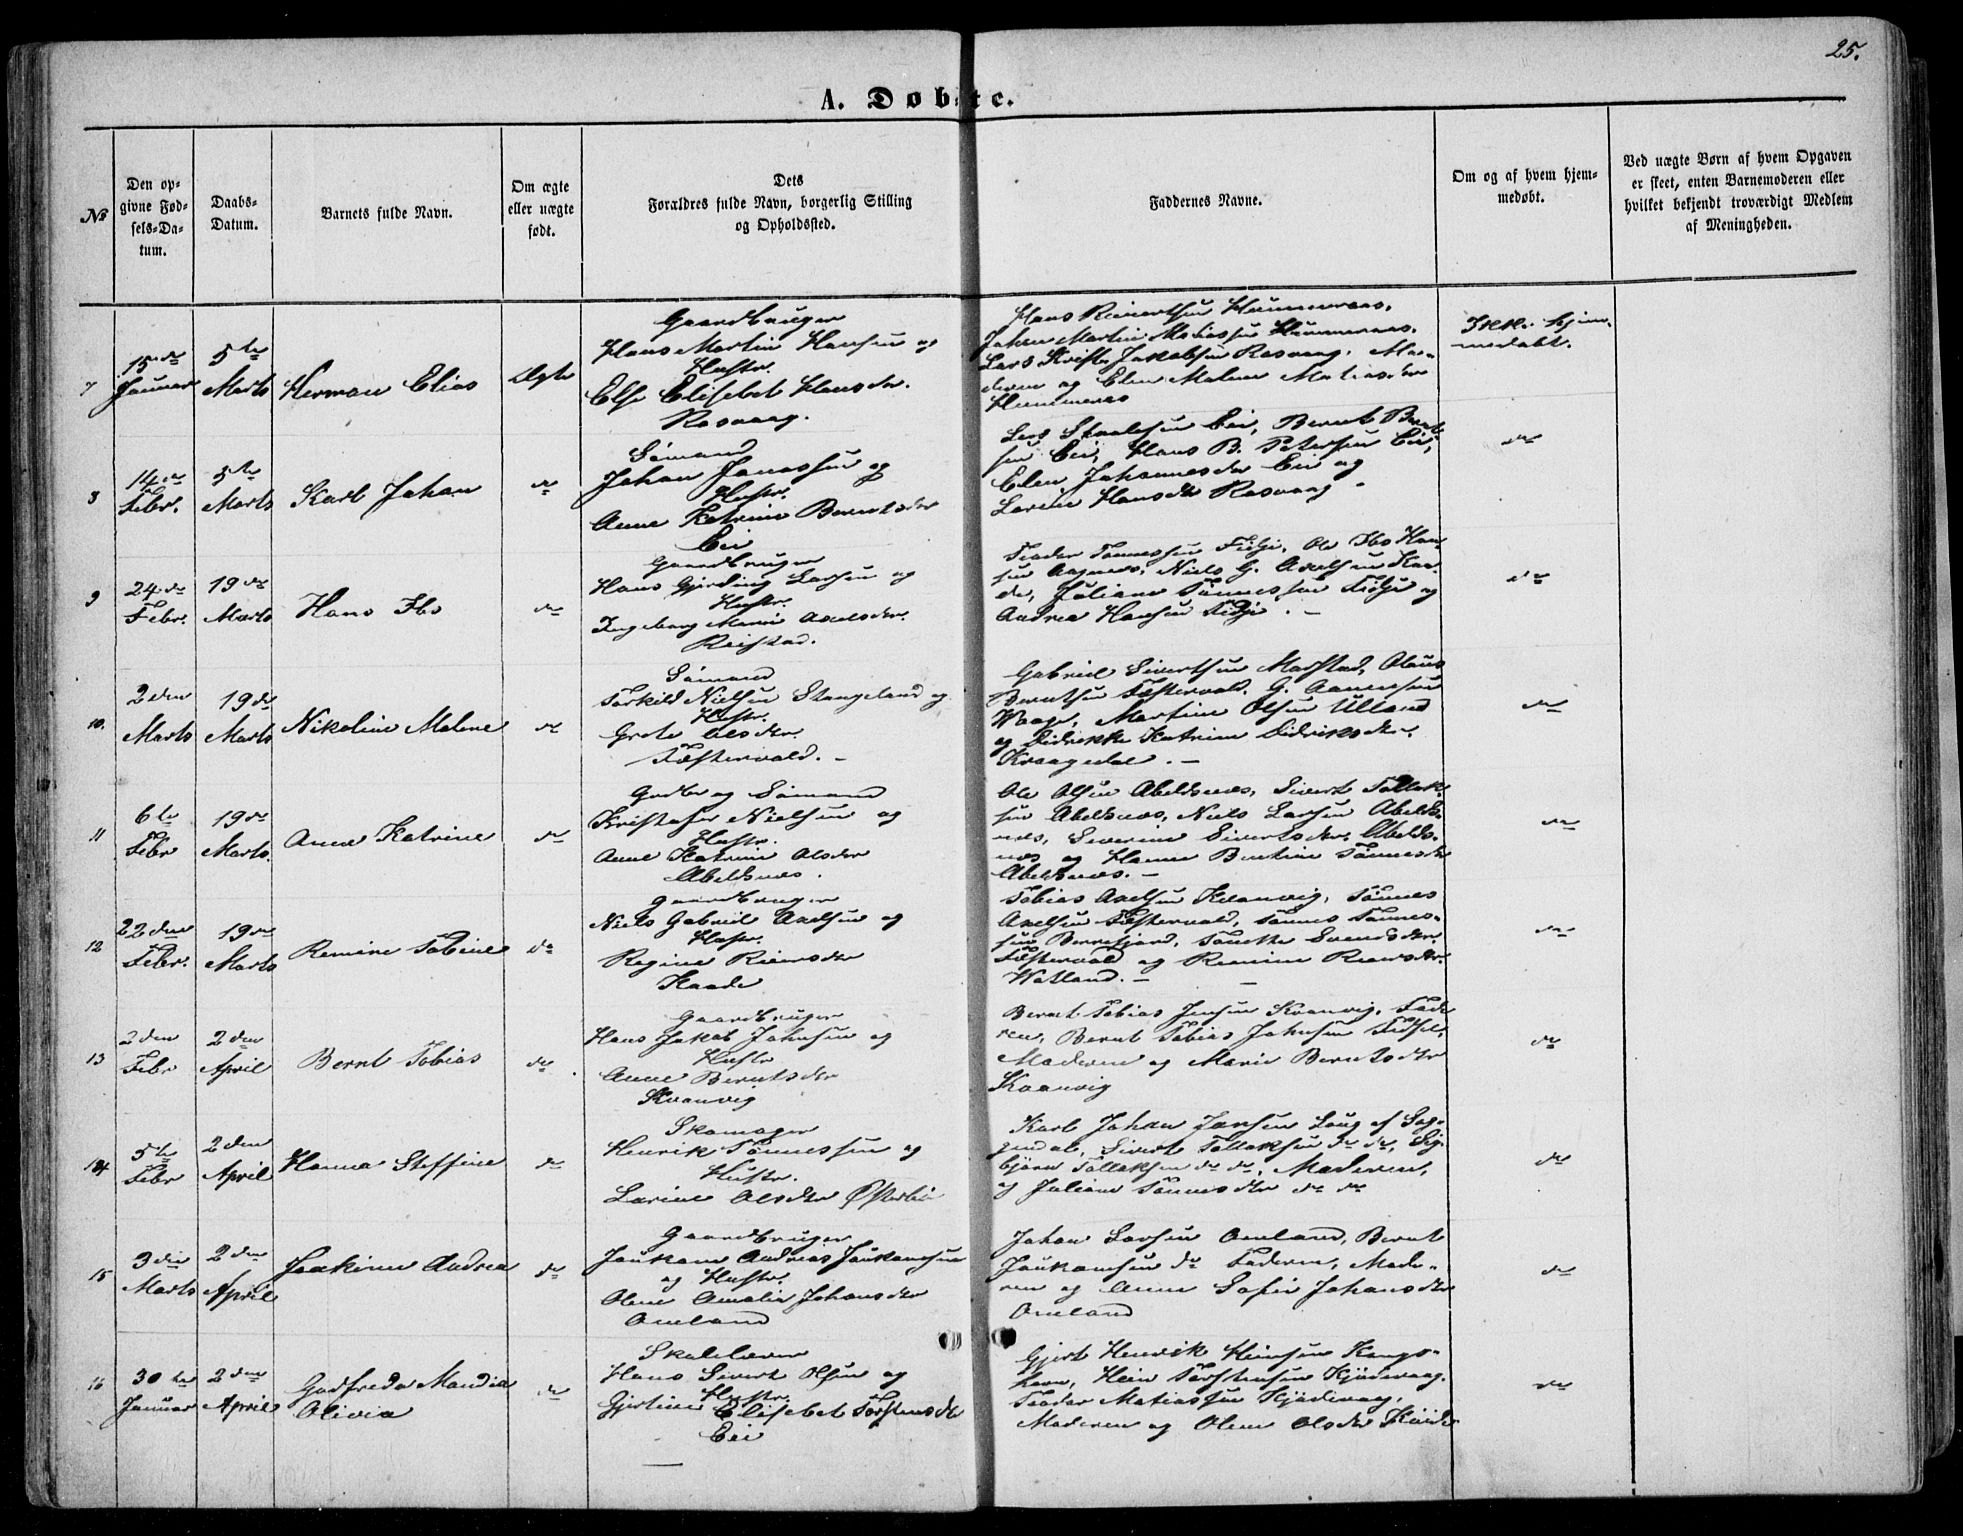 25.
A. Døbte.
№
Den op-
givne Fød-
sels-Da-
tum.
Daabs-
Datum.
Barnets fulde Navn.
Om ægte
eller uægte
født.
Dets
Forældres fulde Navn, borgerlig Stilling
og Opholdssted.
Faddernes Navne.
Om og af hvem hjem-
medøbt.
Ved uægte Børn af hvem Opgaven
er skeet, enten Barnemoderen eller
hvilket bekjendt troværdigt Medlem
af Meningheden.
7
15de
Januar
5te
Marts
Herman Elias
Ægte
Gaardbruger
Hans Martin Hansen og
Hustr.
Else Elisebet Hansdtr.
Rasvaag.
Hans Reinertsen Hummeraas,
Johan Martin Matiassen Hummeraas.
Lars Krist. Jakobsen Rasvaag. Mo-
deren og Elen Malene Matiasdtr
Hummeraas
Ikke hjem-
medøbt.
8
14de
Febr.
5te
Marts
Karl Johan
do
Sømand
Johan Jonassen og
Hustr.
Anne Katrine Berntsdtr
Eie
Lars Eie, Bernt Bernt-
sen Eie, Hans B. Petersen Eie,
Elen Johannesdtr Eie og
Larine Hansdtr Rasvaag -
do
9
24de
Febr.
19de
Marts
Hans Ibs
do
Gaardbruger
Hans Gjerding Larsen og
Hustr.
Ingeborg Marie Axelsdtr.
Reistad.
Teodor Tønnessen Fidje, Ole Ibs Han-
sen Niels G. Axelsen Kaa-
de, Juliane Tønnessen Fidje og
Andrea Hansen Fidje. -
do
10.
2den
Marts
19de
Marts
Nikoline Malene
do
Sømand
Torkild Nielsen Stangeland og
Hustr.
Grete Olsdtr.
Fæstervold. -
Gabriel Sivertsen Marstad, Olaus
Berntsen Fæstervold. G. Aanensen
Waage, Martine Olsen Ulland
og Didrikke Katrine Didriksdtr.
Kraagedal. -
do
11
6te
Febr
19de
Marts
Anna Katrine
do
Gadbr og Sømand
Kristofer Nielsen og
Hustr.
Anne Katrine Olsdtr
Abeldsnes.
Ole Olsen Abeldsnes, Sivert Tollak-
sen Abeldsnes, Niels Larsen Abelds-
nes, Severine Sivertsdtr. Abelds-
nes og Hanne Bertine Tønnesdtr
Abeldsnes. -
do
12
22den
Febr.
19de
Marts
Remine Tobine
do
Gaardbruger
Niels Gabriel Axelsen og
Hustr.
Regine Reiersdtr
Kaade
Tobias Axelsen Kvanvig, Tønnes
Axelsen Fæstervold, Tønnes Tønnes-
sen Berrefjord, Tønette Svendsdtr.
Fæstervold og Remine Reiersdtr.
Watland. -
do
13
2den
Febr
2den
April
Bernt Tobias
do
Gaardbruger
Hans Jakob Johnsen og
Hustr
Anne Berntsdtr
Kvanvig
Bernt Tobias Jensen Kvanvig, Fade-
ren, Bernt Tobias Johnsen Fidsel,
Moderen og Marie Berntsdtr
Kvanvig
do
14
5te
Febr
2den
April
Hanna Steffine
do
Skomager
Henrik Tønnessen og
Hustr.
Larine Olsdtr Østerbø
Karl Johan Jansen Loug af Sog-
gendal, Sivert Tollaksen do do, Sig-
bjørn Tollaksen do do, Moderen,
og Juliane Tønnesdtr do do
do
15
3die
Marts
2den
April
Joakime Andrea
do
Gaardbruger
Joakum Andreas Joakumsen
og Hustr.
Olene Amalie Johansdtr
Omland
Johan Larsen Omland, Bernt
Joakumsen do Faderen, Mode-
ren og Anne Sofie Johansdtr
Omland
do
16
30te
Januar
2den
April
Gudfreda Mandia
Olivia
do
Skolelærer
Hans Sivert Olsen og
Hustr.
Gjertine Elisebet Torstensdtr
Eie
Gjert Henrik Heinsen Kongs-
havn, Hein Torstensen Kjødevaag,
Teodor Matiassen Kjødevaag,
Moderen og Olene Olsdtr Kjøde
do